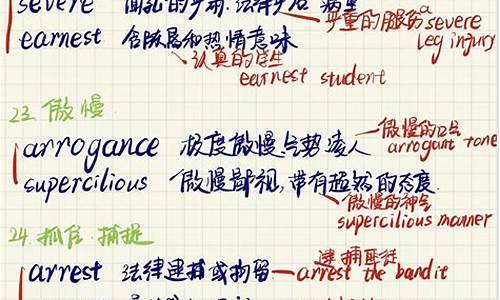 severe
严重的腿伤 a severe leg injury
earnest 含朦胧和热情意味
认真的学生
earnest student
23. 傲慢
arrogance 极度傲慢, 气势凌人
傲慢的口气
arrogant tone
supercilious 傲慢鄙视, 带有超然的态度
傲慢的神气
supercilious manner
24. 抓住. 捕捉
arrest 法律逮捕或拘留
逮捕匪徒
arrest the bandit